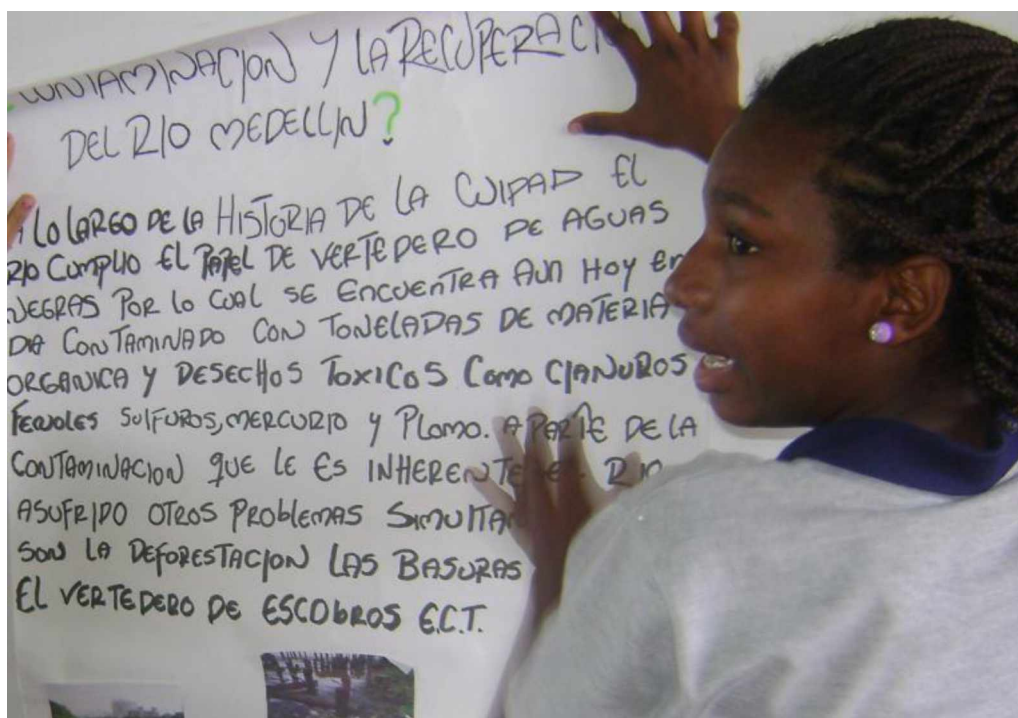 CONTAMINACION Y LA RECUPERACI
DEL RIO MEDELLIN?
A LO LARGO DE LA HISTORIA DE LA CUIPAD EL
RIO CUMPLIO EL PAPEL DE VERTEDERO DE AGUAS
NEGRAS POR LO CUAL SE ENCUENTRA AUN HOY En
DIA CONTAMINADO CON TONELADAS DE MATERIA
ORGANICA Y DESECHOS TOXICOS Como CIANUROS
FENOLES SULFUROS, MERCURIO Y PLOMO. APARTE DE LA
CONTAMINACION QUE LE ES INHERENTE RIO
ASUFRIDO OTROS PROBLEMAS SIMULTA
SON LA DEFORESTACION LAS BASURAS
EL VERTEDERO DE ESCObROS E.C.T.